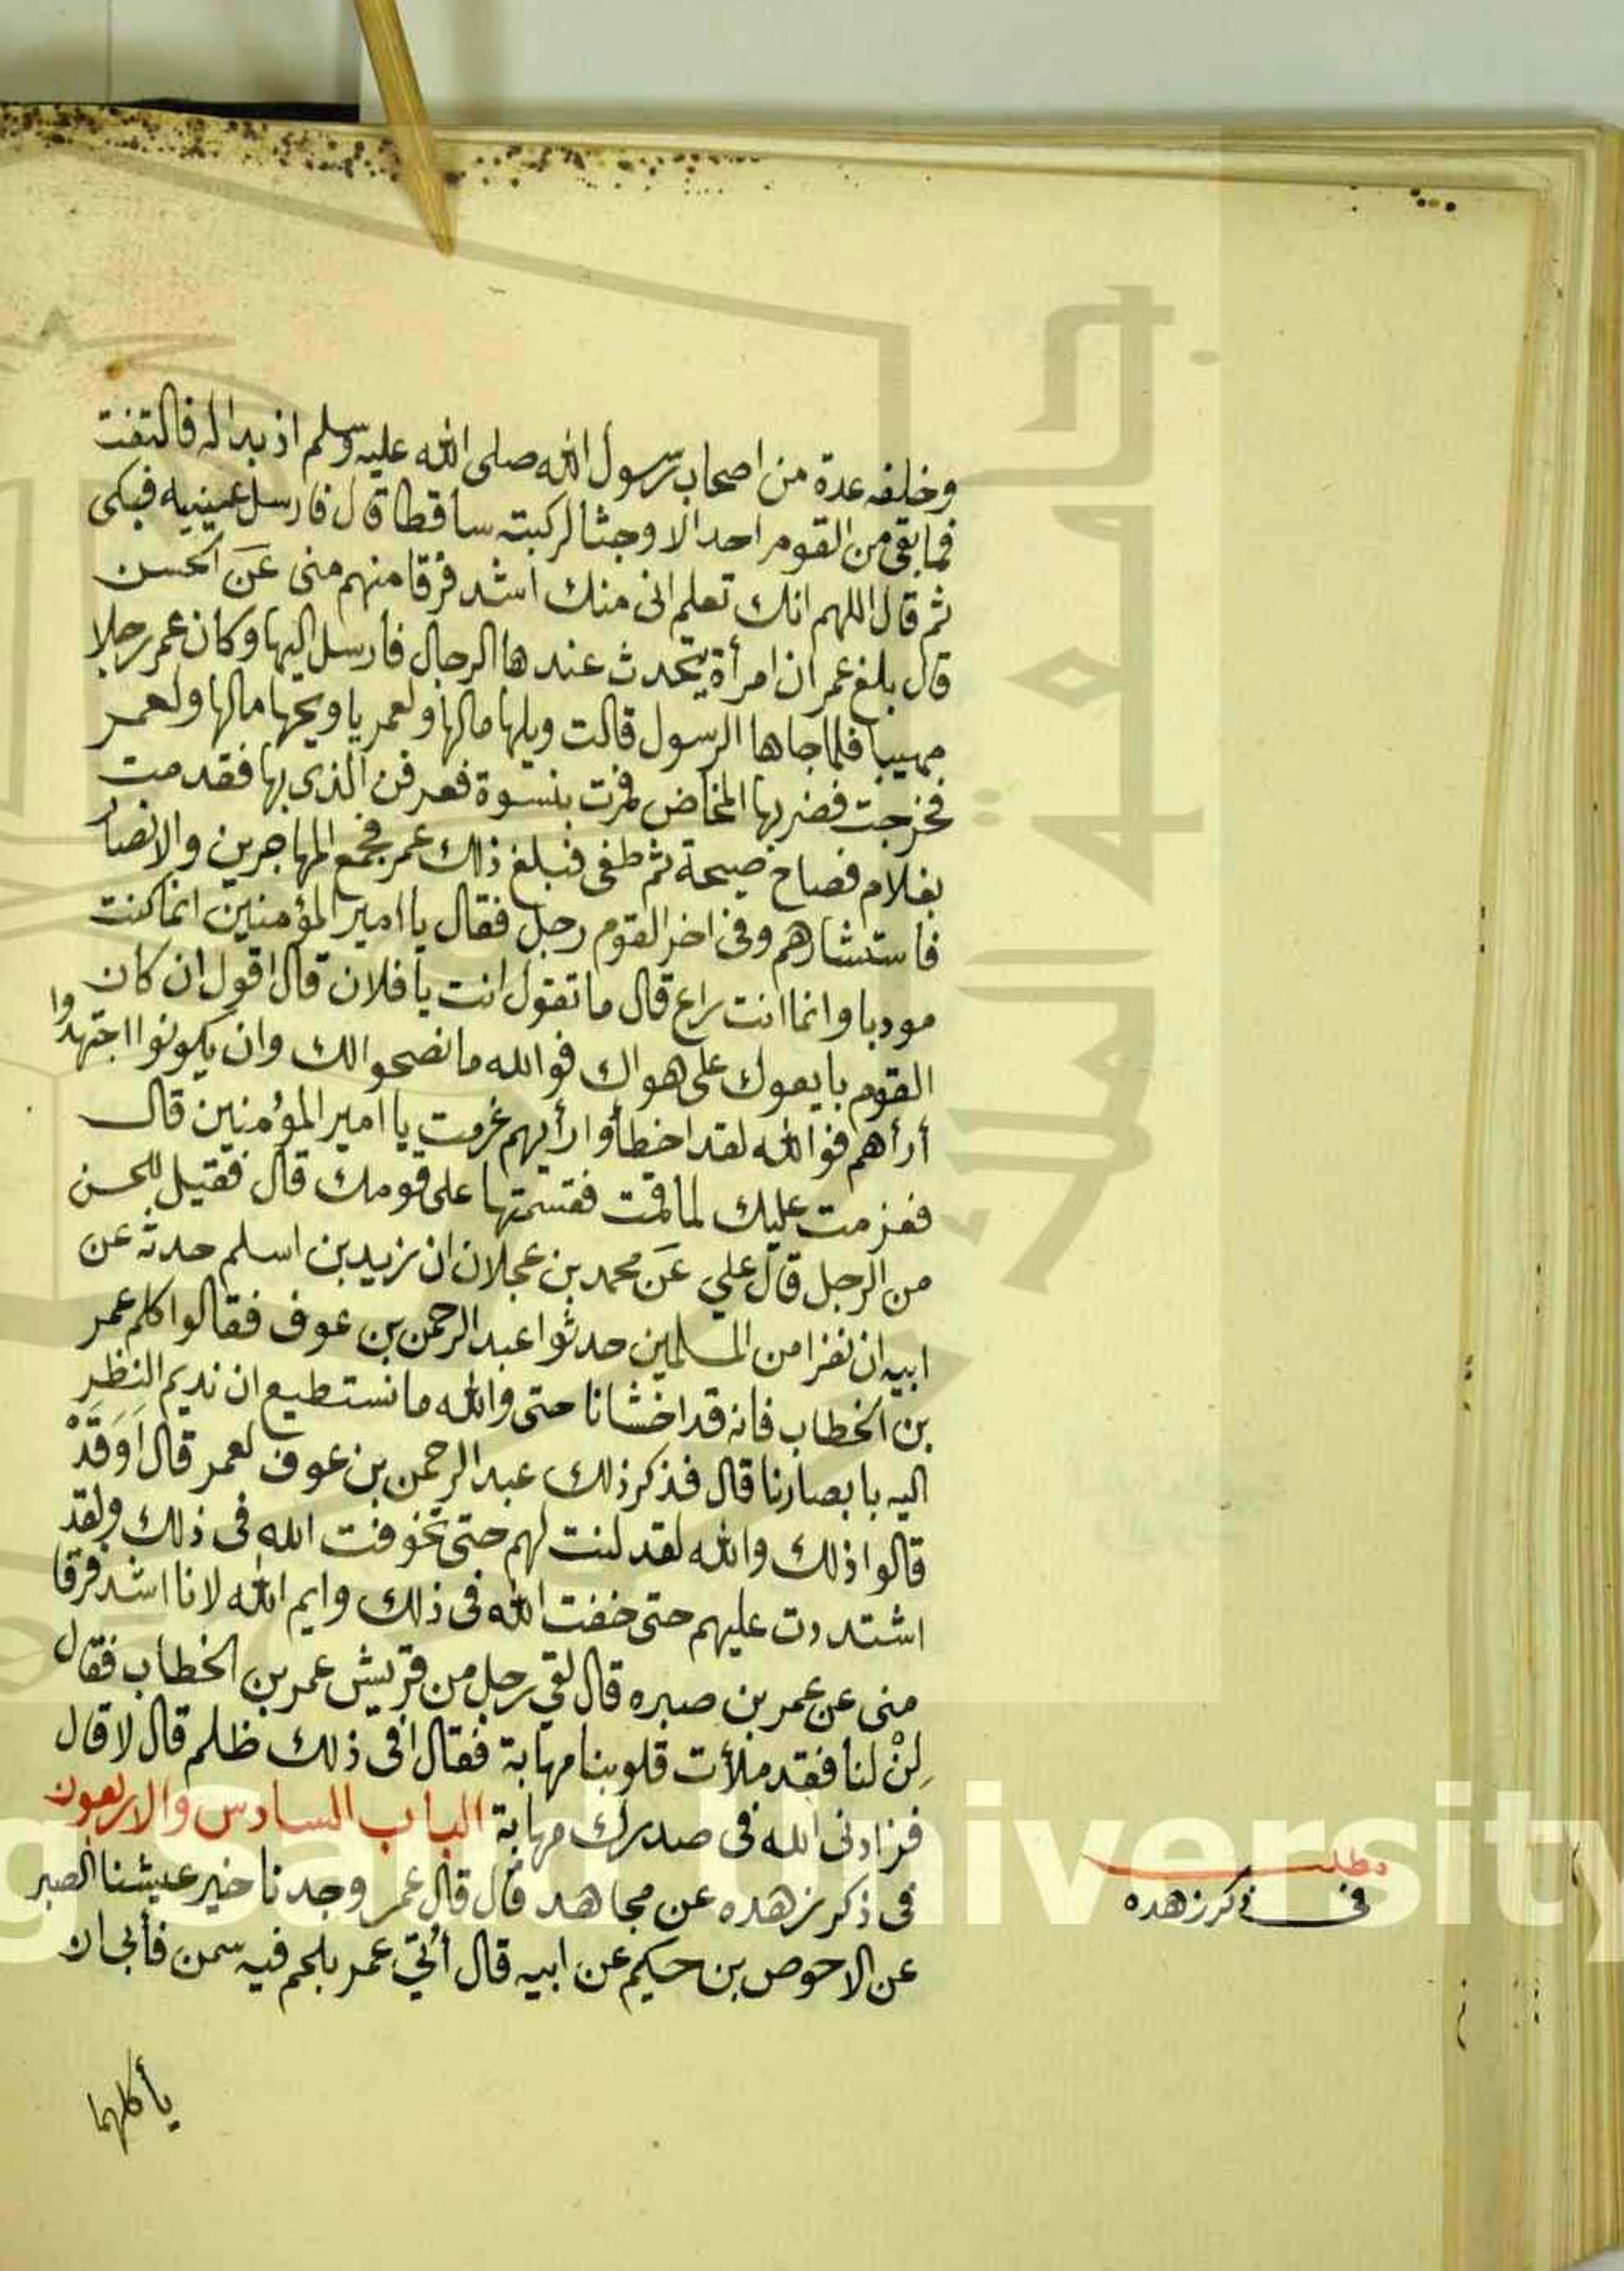 وخلفه عدة من اصحاب رسول الله صلى الله عليه وسلم اذ بدا له فالتفت
فما بقى من القوم احد الا وجثا لركبته ساقطا قال فارسل عينيه فبكى
ثم قال اللهم انك تعلم انى منك اشد فرقا منهم منى عَن الحسن
قال بلغ عمر ان امرأة يتحدث عندها الرجال فارسل اليها وكان عمر رجلا
مهيبا فلما جاها الرسول قالت ويلها مالها ولعمر يا ويحها مالها ولعمر
فخرجت فضربها المخاض فمرت بنسوة فعرفن الذى بها فقدمت
بغلام فصاح صيحة ثم طفى فبلغ ذلك عمر فجمع المهاجرين والانصار
فاستشارهم وفى اخر القوم رجل فقال يا امير المؤمنين انما كنت
مودبا وانما انت راع قال ما تقول انت يا فلان قال اقول ان كان
القوم بايعوك على هواك فوالله ما نصحوا لك وان يكونوا اجتهدوا
أرأهم فوالله لقد اخطأوا رأيهم غرمت يا امير المؤمنين قال
فعزمت عليك لما قمت فقسمتها على قومك قال فقيل للحسن
من الرجل قال علي عَن محمد بن عجلان ان زيد بن اسلم حدثه عن
ابيه ان نفرا من المسلمين حدثوا عبد الرحمن بن عوف فقالوا كلم عمر
بن الخطاب فانه قد اخشانا حتى والله ما نستطيع ان نديم النظر
اليه بابصارنا قال فذكر ذلك عبد الرحمن بن عوف لعمر قال أَوَقَدْ
قالوا ذلك والله لقد لنت لهم حتى تخوفت الله فى ذلك ولقد
اشتددت عليهم حتى خفت الله فى ذلك وايم الله لانا اشد فرقا
منى عن عمر بن صبره قال لقي رجل من قريش عمر بن الخطاب فقال
لِنْ لنا فقد ملأت قلوبنا مهابة فقال افى ذلك ظلم قال لا قال
فزادنى الله فى صدرك مهابة الباب السادس والاربعون
فى ذكر زهده عن مجاهد قال قال عمر وجدنا خير عيشنا الصبر
عن الاحوص بن حكيم عن ابيه قال أُتي عمر بلحم فيه سمن فأبى ان
يأكلهما
مطلب
فى ذكر زهده
King Saud University